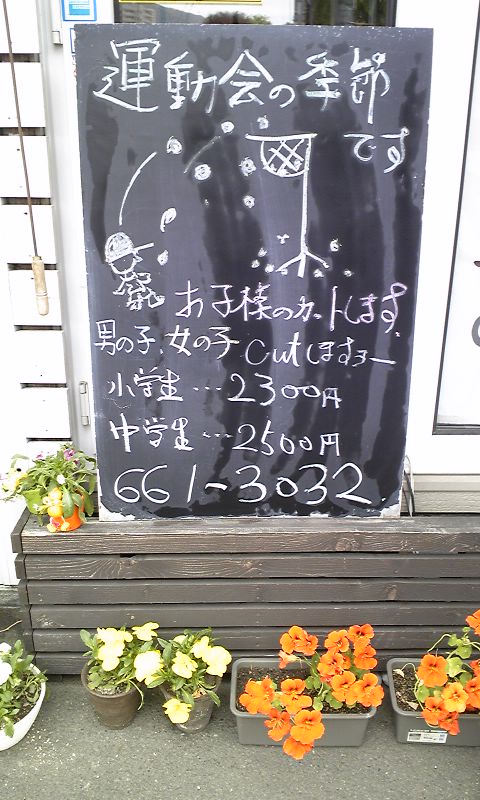 運動会の季節
です
お子様のカットします。
男の子、女の子 cutしますヨー
小学生…2300円
中学生…2500円
661-3032